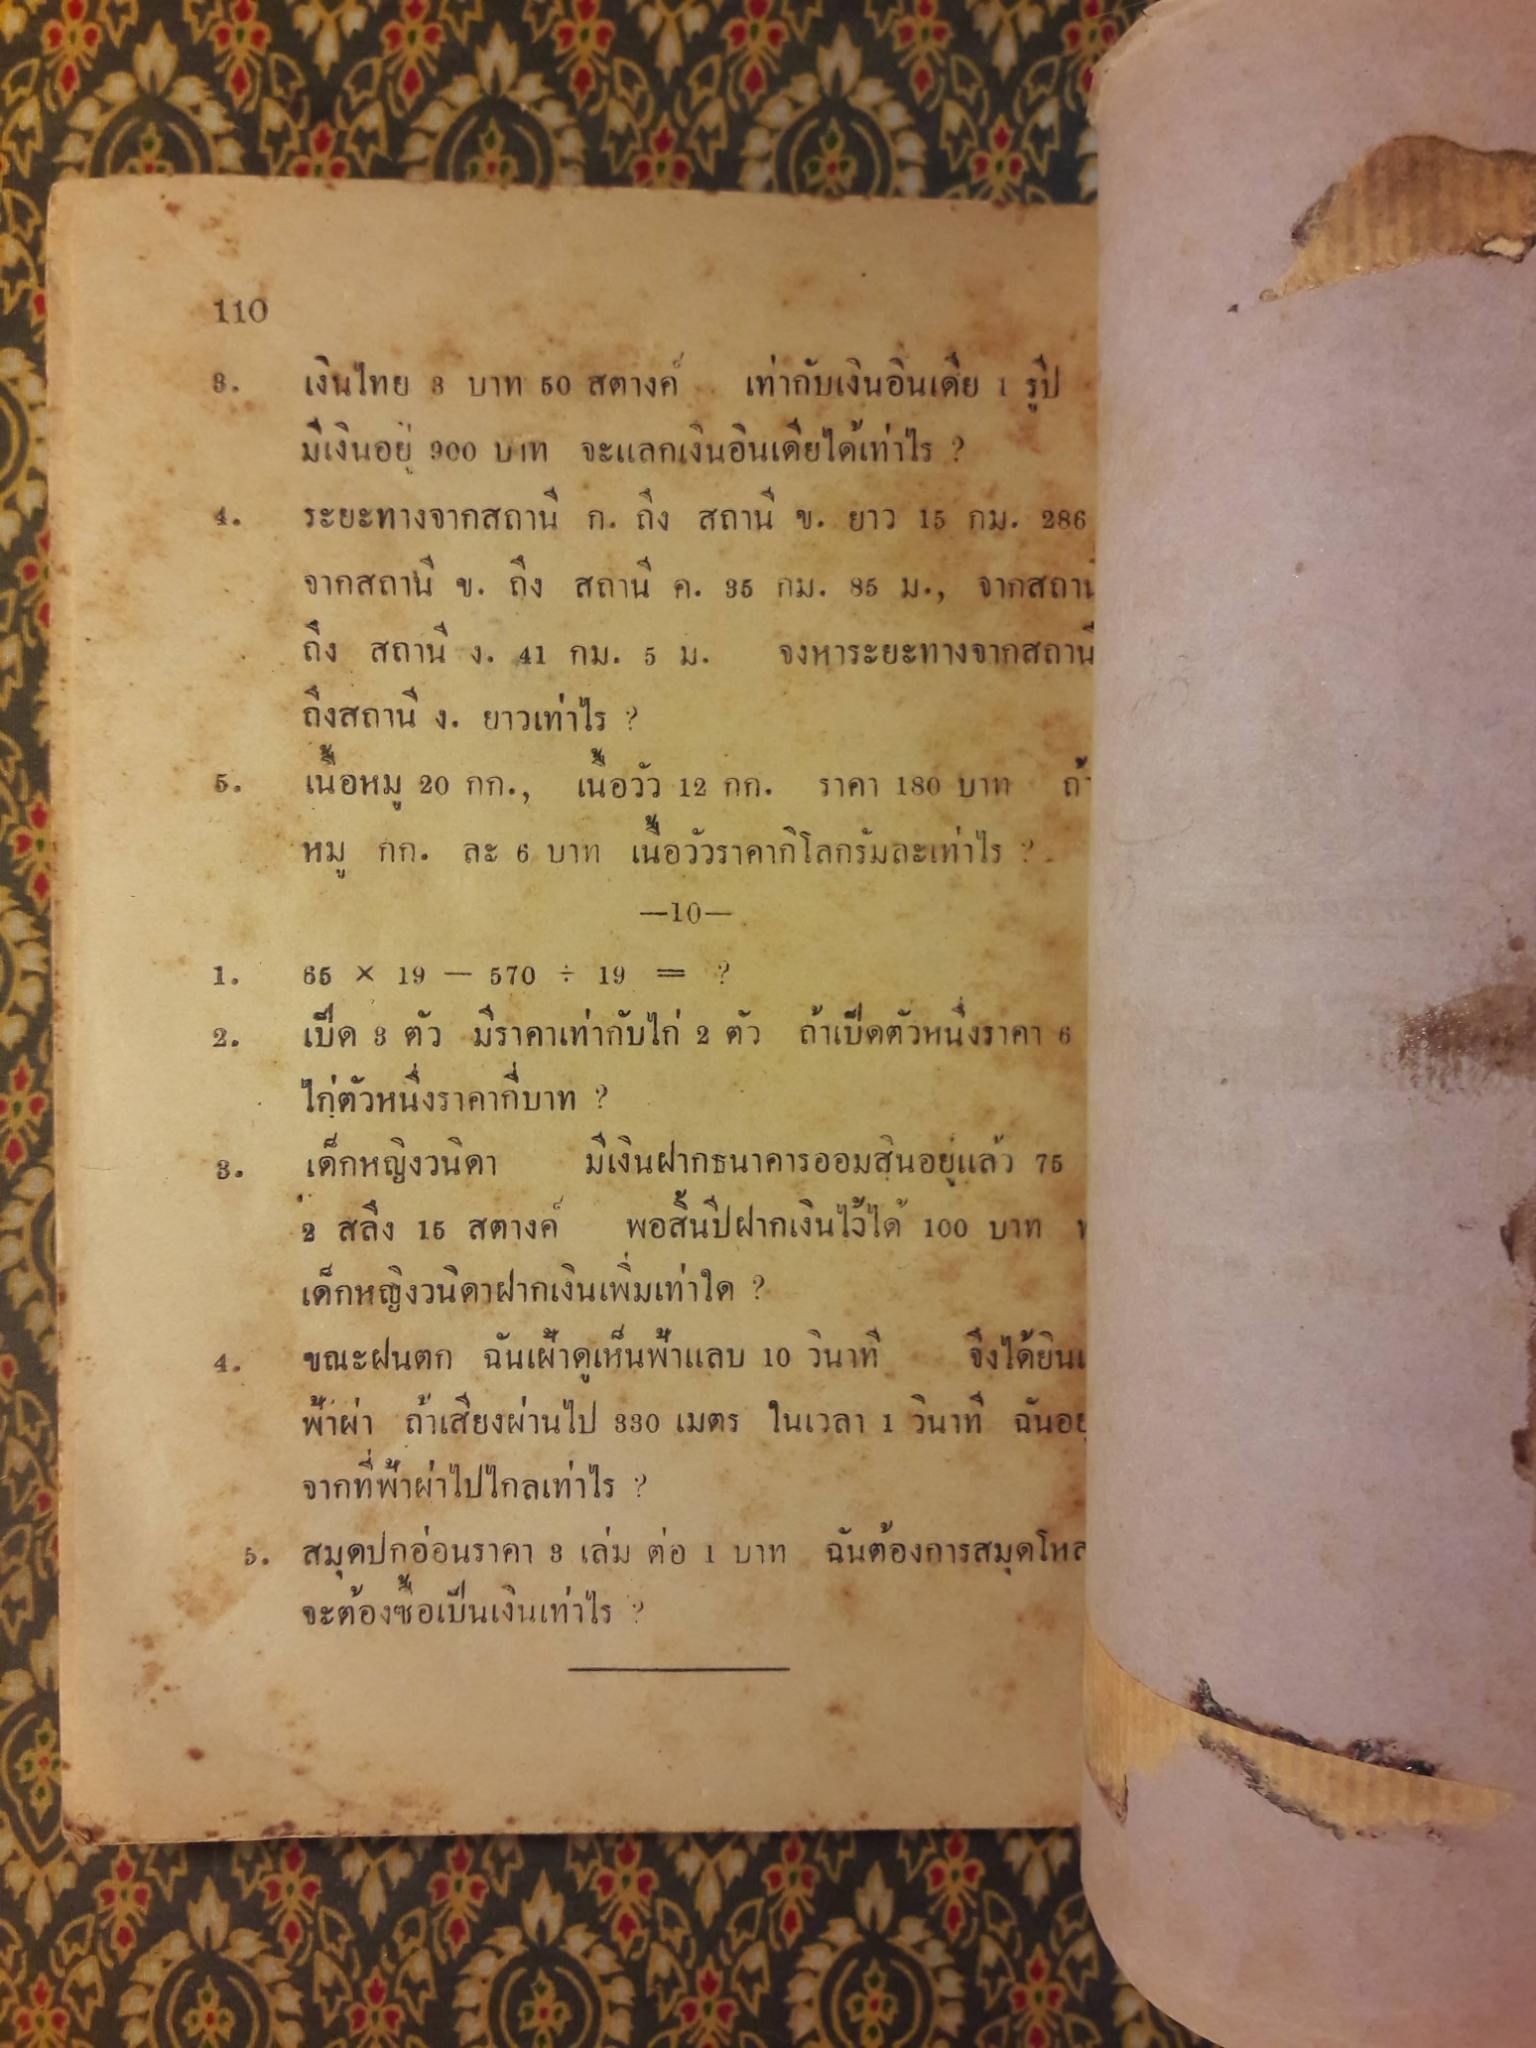 110
3. เงินไทย 3 บาท 50 สตางค์ เท่ากับเงินอินเดีย 1 รูปี
มีเงินอยู่ 900 บาท จะแลกเงินอินเดียได้เท่าไร ?
4. ระยะทางจากสถานี ก. ถึง สถานี ข. ยาว 15 กม. 286
จากสถานี ข. ถึง สถานี ค. 35 กม. 85 ม., จากสถานี
ถึง สถานี ง. 41 กม. 5 ม. จงหาระยะทางจากสถานี
ถึงสถานี ง. ยาวเท่าไร ?
5. เนื้อหมู 20 กก., เนื้อวัว 12 กก. ราคา 180 บาท ถ้า
หมู กก. ละ 6 บาท เนื้อวัวราคากิโลกรัมละเท่าไร ?
—10—
1. 65 × 19 — 570 ÷ 19 = ?
2. เป็ด 3 ตัว มีราคาเท่ากับไก่ 2 ตัว ถ้าเป็ดตัวหนึ่งราคา 6
ไก่ตัวหนึ่งราคากี่บาท ?
3. เด็กหญิงวนิดา มีเงินฝากธนาคารออมสินอยู่แล้ว 75
2 สลึง 15 สตางค์ พอสิ้นปีฝากเงินไว้ได้ 100 บาท
เด็กหญิงวนิดาฝากเงินเพิ่มเท่าใด ?
4. ขณะฝนตก ฉันเฝ้าดูเห็นฟ้าแลบ 10 วินาที จึงได้ยิน
ฟ้าผ่า ถ้าเสียงผ่านไป 330 เมตร ในเวลา 1 วินาที ฉันอยู่
จากที่ฟ้าผ่าไปไกลเท่าไร ?
5. สมุดปกอ่อนราคา 3 เล่ม ต่อ 1 บาท ฉันต้องการสมุดโหล
จะต้องซื้อเป็นเงินเท่าไร ?